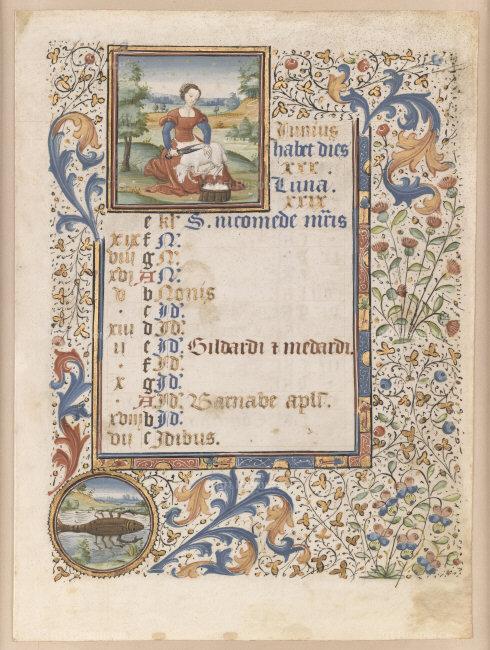 Junius
habet dies
xxx.
Luna.
xxix
e kl' S. nicomede mr̃is
xix f N'.
viii g N'.
xvi A N'.
v b Nonis
. c Jd'.
xiii d Jd'.
ii e Jd'. Gildardi ⁊ medardi.
. f Jd'.
x g Jd'.
. A Jd'. Barnabe apłi.
xviii b Jd'.
vii c Jdibus.